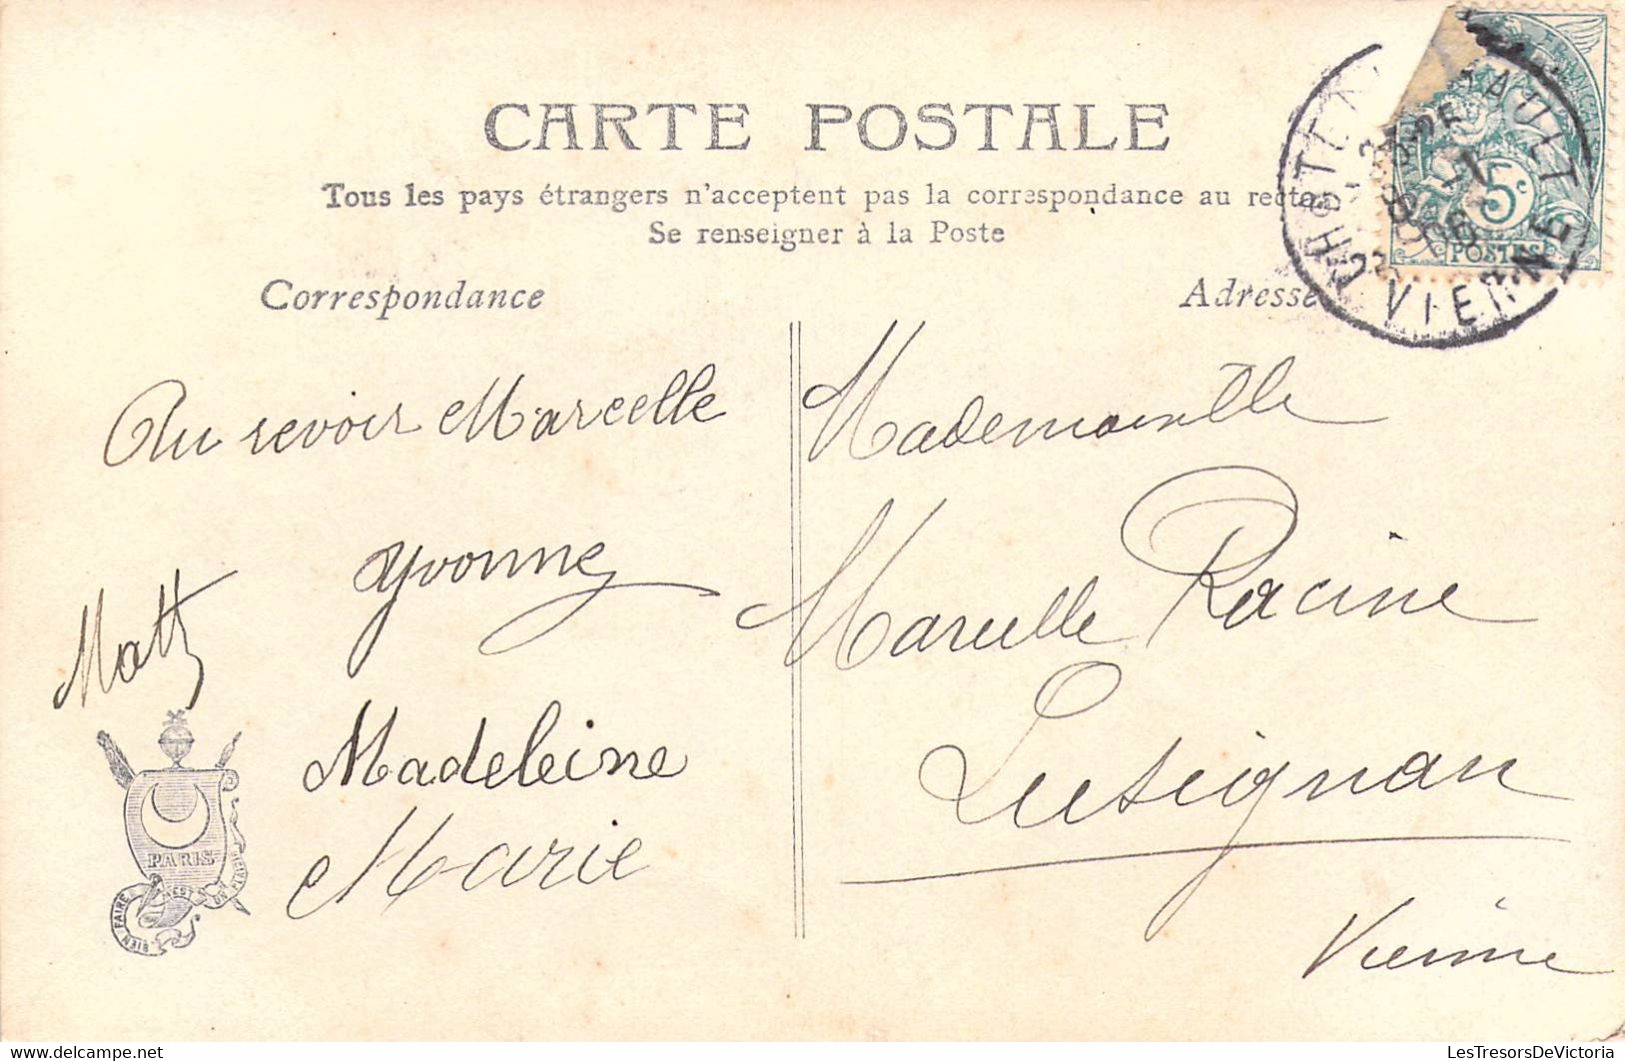 CARTE POSTALE
Tous les pays étrangers n'acceptent pas la correspondance au recto
Se renseigner à la Poste
Correspondance
Adresse
5c
POSTES
VIENNE
Au revoir Marcelle
Yvonne
Madeleine
Marie
PARIS
BIEN FAIRE
EST
Mademoiselle
Marcelle Racine
Lusignan
Vienne
www.mestresors.net
LesTresorsDeVictoria